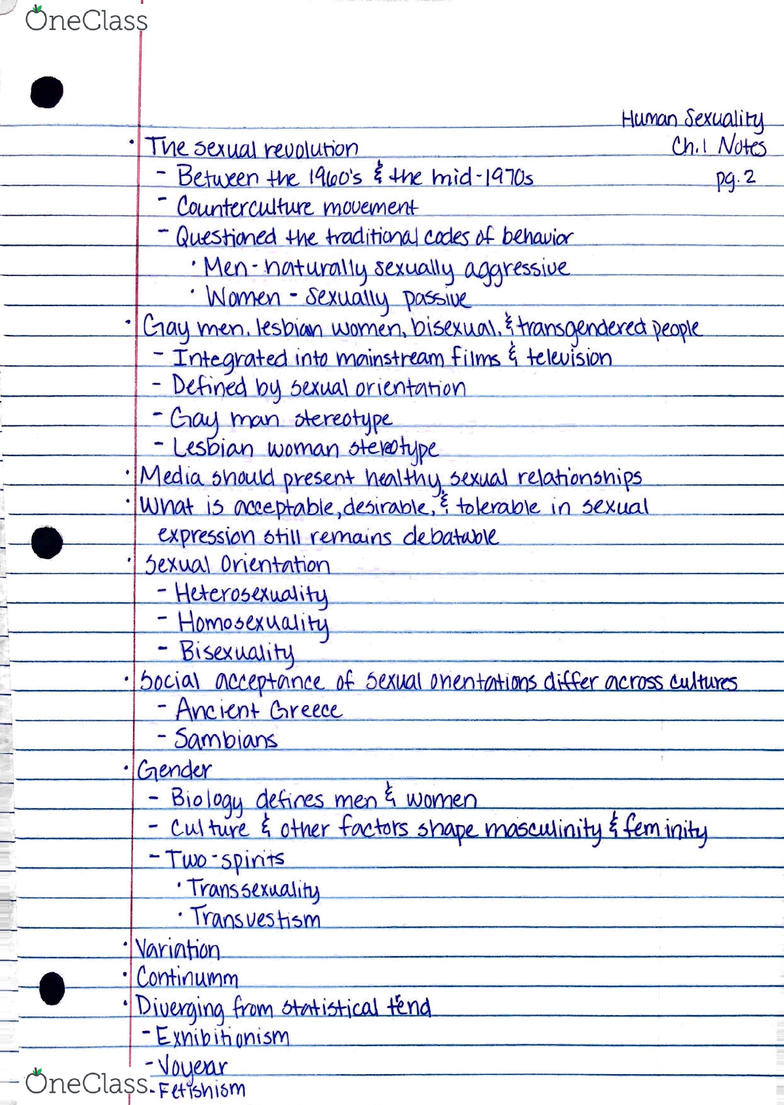 OneClass
Human Sexuality
Ch.1 Notes
pg. 2
· The sexual revolution
- Between the 1960's & the mid-1970s
- Counterculture movement
- Questioned the traditional codes of behavior
· Men - naturally sexually aggressive
· Women - sexually passive
· Gay men, lesbian women, bisexual, & transgendered people
- Integrated into mainstream films & television
- Defined by sexual orientation
- Gay man stereotype
- Lesbian woman stereotype
· Media should present healthy sexual relationships
· What is acceptable, desirable, & tolerable in sexual
expression still remains debatable
· Sexual Orientation
- Heterosexuality
- Homosexuality
- Bisexuality
· Social acceptance of sexual orientations differ across cultures
- Ancient Greece
- Sambians
· Gender
- Biology defines men & women
- Culture & other factors shape masculinity & feminity
- Two-spirits
· Transsexuality
· Transvestism
· Variation
· Continumm
· Diverging from statistical tend
- Exhibitionism
- Voyear
- Fetishism
OneClass